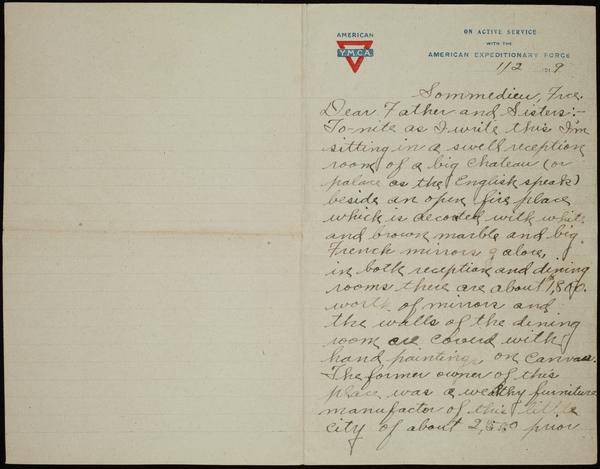 AMERICAN
Y.M.C.A.
ON ACTIVE SERVICE
WITH THE
AMERICAN EXPEDITIONARY FORCE
1/2 1919
Sommedieu, Frce.
Dear Father and Sisters:-
To-nite as I write this I'm
sitting in a swell reception
room of a big chateau (or
palace as the English speak)
beside an open fire place
which is decorded with white
and brown marble and big
French mirrors galore,
in both reception and dining
rooms there are about
worth of mirrors and
the walls of the dining
room are coverd with
hand paintings on canvas.
The former owner of this
place was a wealthy furniture
manufactor of this little
city of about prior